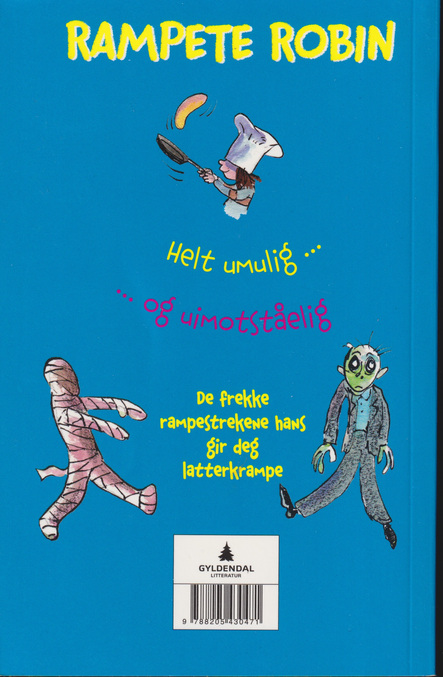 RAMPETE ROBIN
Helt umulig ...
... og uimotståelig
De frekke
rampestrekene hans
gir deg
latterkrampe
GYLDENDAL
LITTERATUR
9 788205 430471